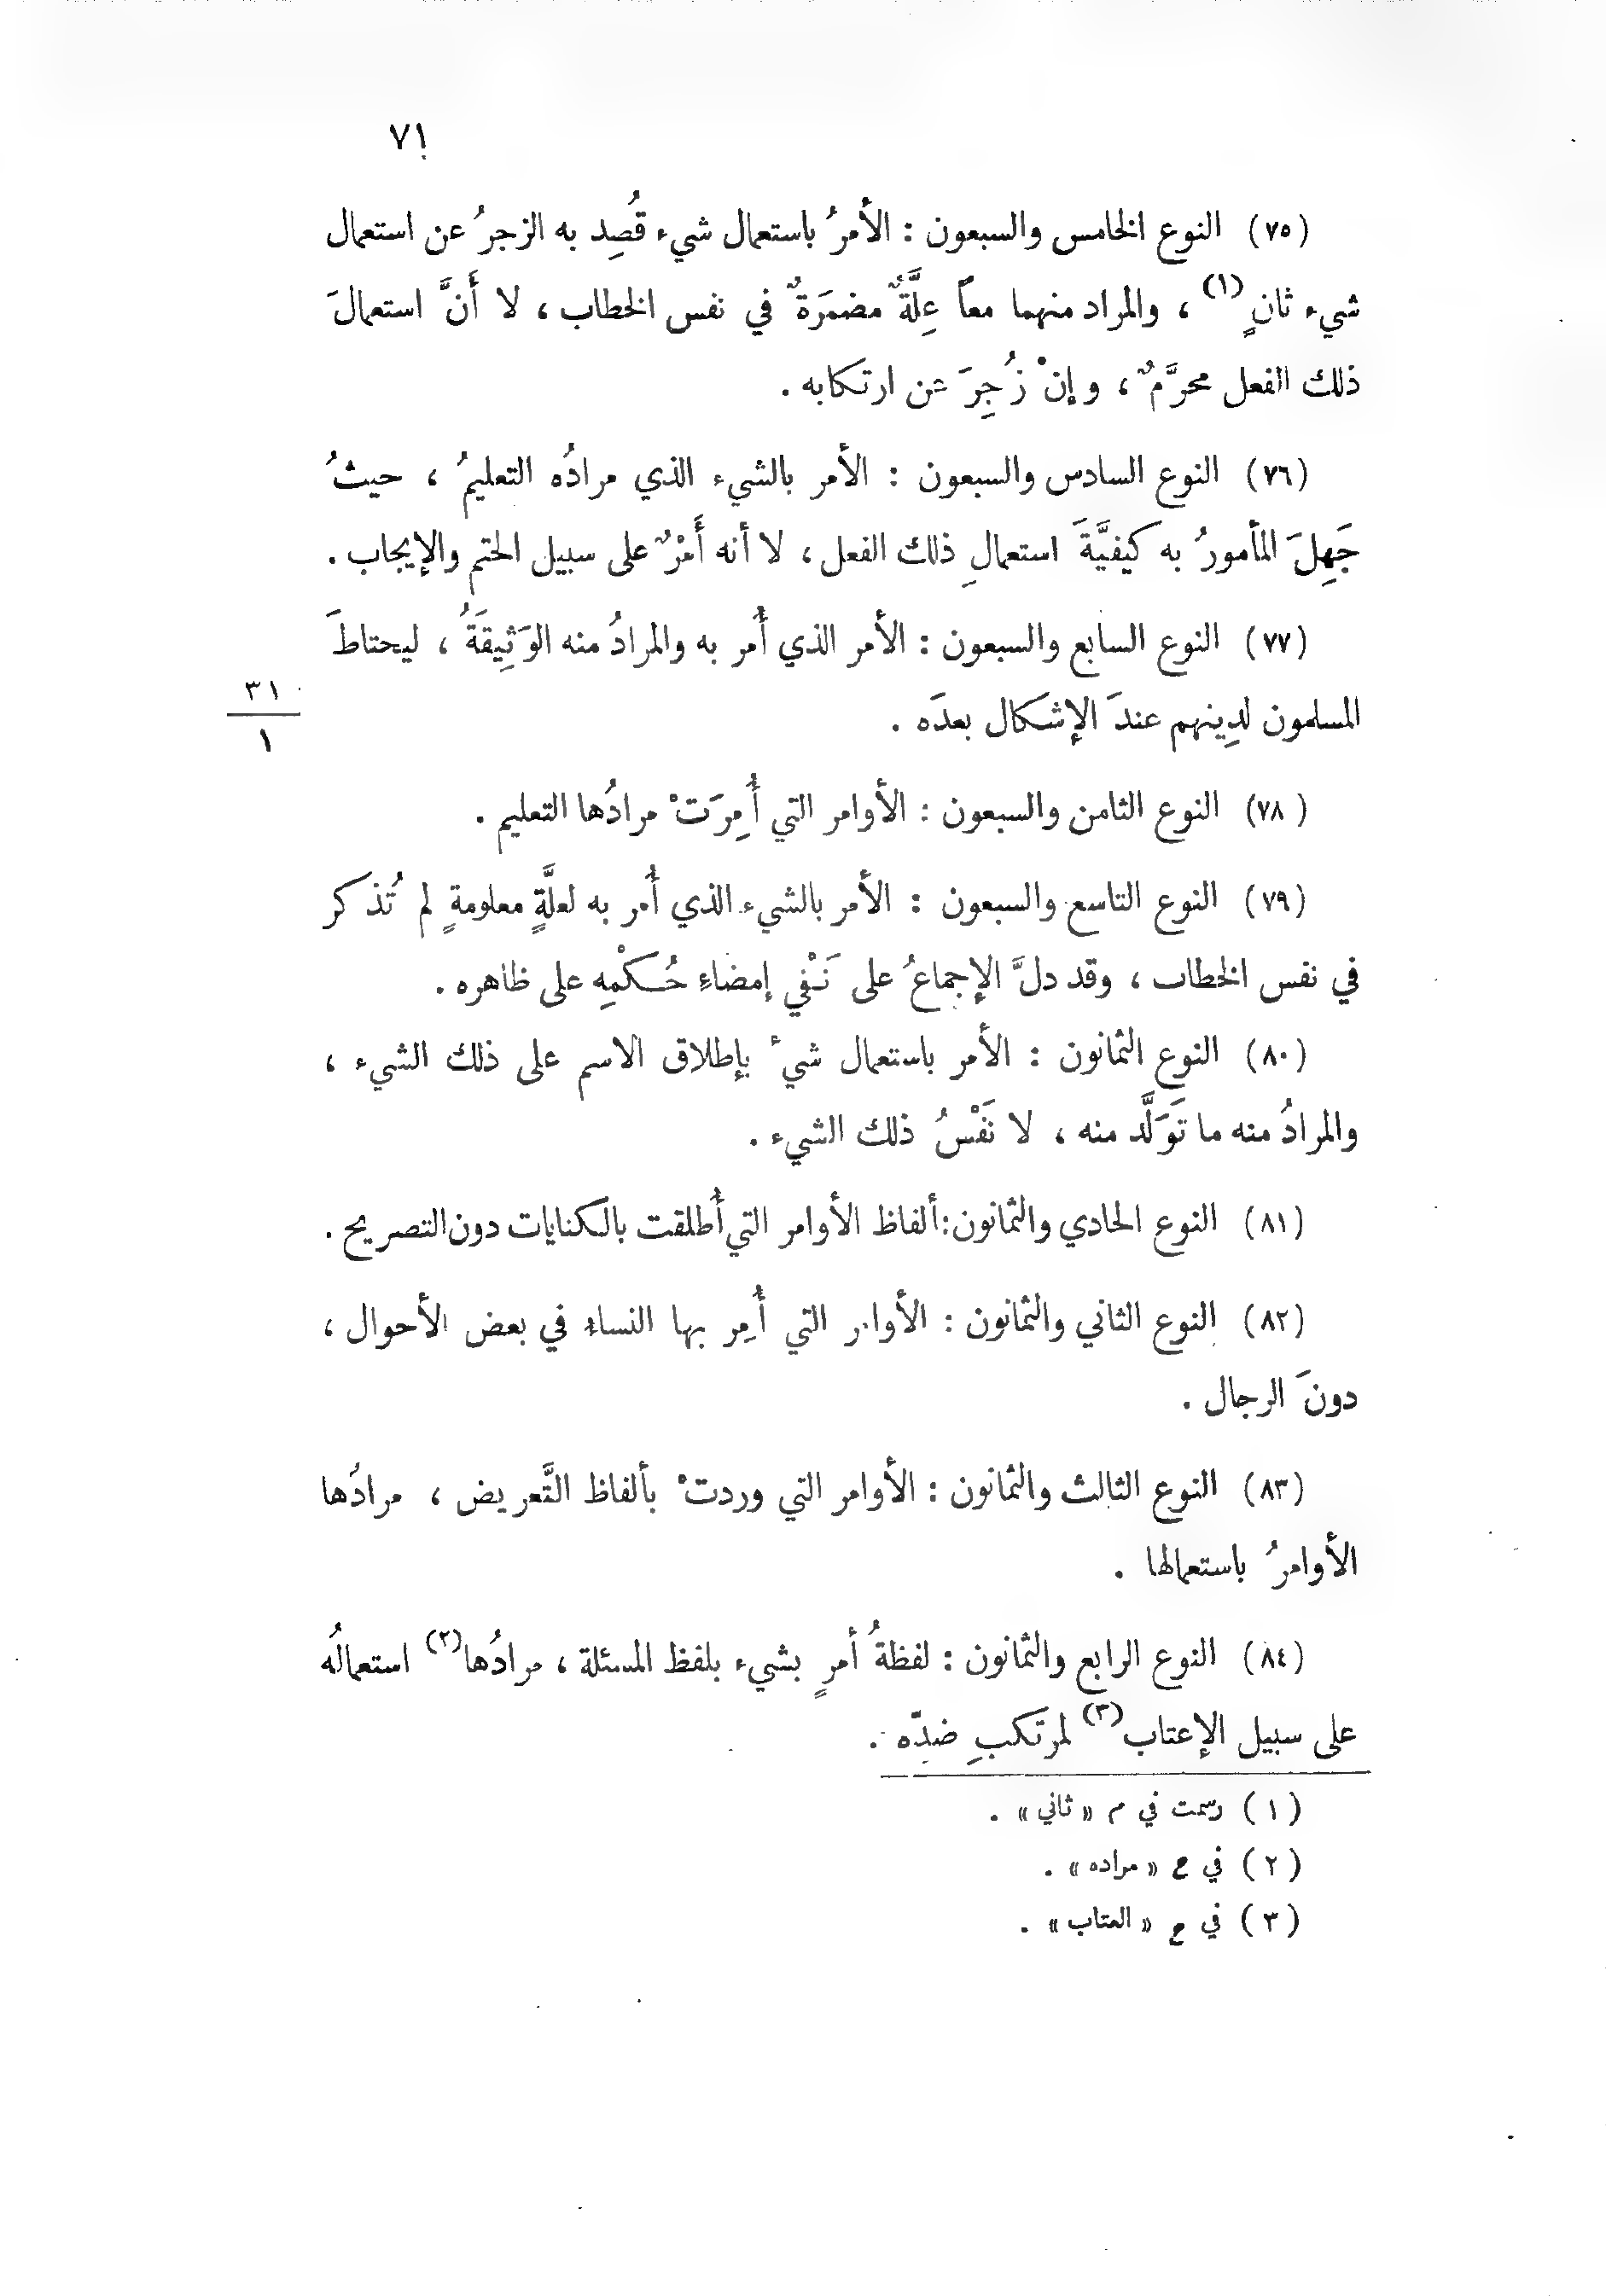 ٧١
(٧٥) النوع الخامس والسبعون : الأمرُ باستعمال شيء قُصِد به الزجرُ عن استعمال
شيء ثانٍ(١) ، والمراد منهما معاً عِلَّةٌ مضمَرَةٌ في نفس الخطاب ، لا أَنَّ استعمالَ
ذلك الفعل محرَّمٌ ، وإنْ زُجِرَ عن ارتكابه .
(٧٦) النوع السادس والسبعون : الأمر بالشيء الذي مرادُه التعليمُ ، حيثُ
جَهِلَ المأمورُ به كيفيَّةَ استعمالِ ذلك الفعل ، لا أنه أَمْرٌ على سبيل الحتم والإيجاب .
(٧٧) النوع السابع والسبعون : الأمر الذي أُمر به والمرادُ منه الوَثِيقَةُ ، ليحتاطَ
المسلمون لدِينهم عندَ الإشكال بعدَه .
٣١
١
(٧٨) النوع الثامن والسبعون : الأوامر التي أُمِرَتْ مرادُها التعليم .
(٧٩) النوع التاسع والسبعون : الأمر بالشيء الذي أُمر به لعلَّةٍ معلومةٍ لم تُذكر
في نفس الخطاب ، وقد دلَّ الإجماعُ على نَفْي إمضاءِ حُكْمِه على ظاهره .
(٨٠) النوع الثمانون : الأمر باستعمال شيءٍ بإطلاق الاسم على ذلك الشيء ،
والمرادُ منه ما تَوَلَّد منه ، لا نَفْسُ ذلك الشيء .
(٨١) النوع الحادي والثمانون : ألفاظ الأوامر التي أُطلقت بالكنايات دون التصريح .
(٨٢) النوع الثاني والثمانون : الأوامر التي أُمِر بها النساء في بعض الأحوال ،
دونَ الرجال .
(٨٣) النوع الثالث والثمانون : الأوامر التي وردتْ بألفاظ التَّعريض ، مرادُها
الأوامرُ باستعمالها .
(٨٤) النوع الرابع والثمانون : لفظةُ أمرٍ بشيء بلفظ المسئلة ، مرادُها(٢) استعمالُه
على سبيل الإعتاب(٣) لمرتكبِ ضدِّه .
(١) رسمت في م « ثاني » .
(٢) في ح « مراده » .
(٣) في ح « العتاب » .